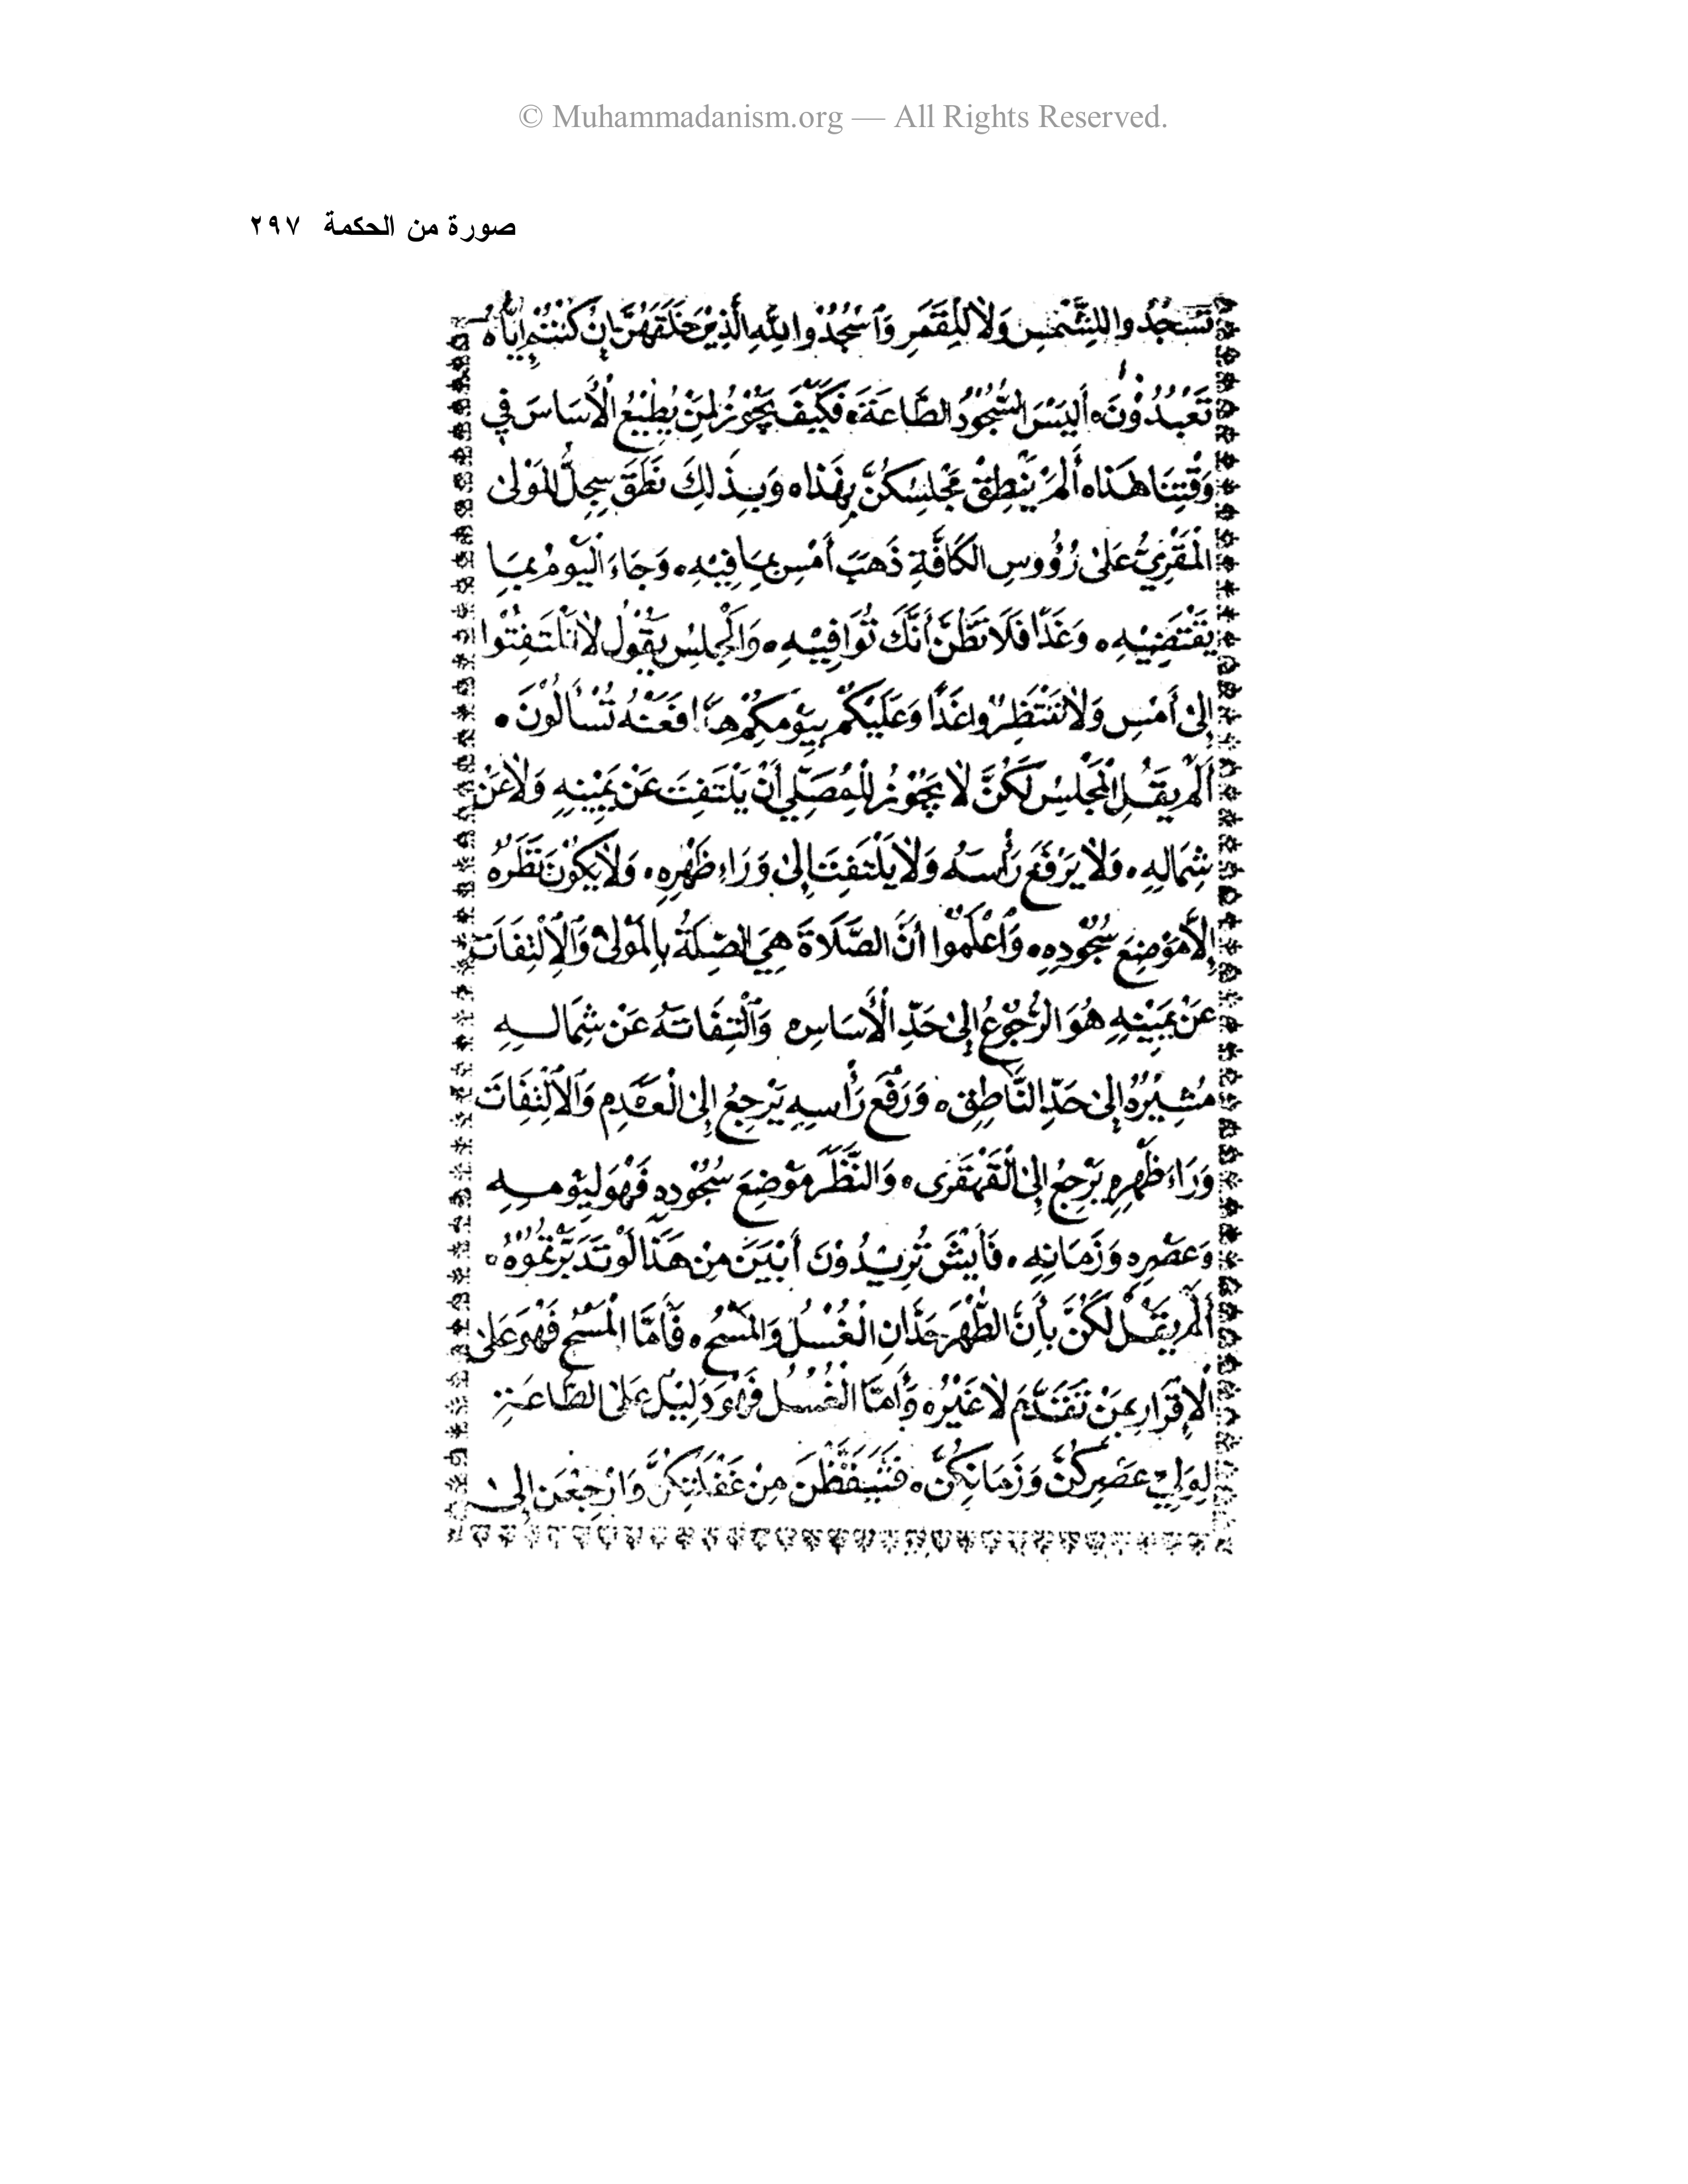 © Muhammadanism.org — All Rights Reserved.
صورة من الحكمة ٢٩٧
تَسْجُدُوا لِلشَّمْسِ وَلَا لِلْقَمَرِ وَٱسْجُدُوا لِلّٰهِ الَّذِيْ خَلَقَهُنَّ إِنْ كُنْتُمْ إِيَّاهُ
تَعْبُدُوْنَ ٥ أَلَيْسَ السُّجُوْدُ الطَّاعَةَ ٥ فَكَيْفَ يَجُوْزُ لِمَنْ يُطِيْعُ الْأَسَاسَ فِي
وَقْتِنَا هٰذَا ٥ أَلَمْ يَنْطِقْ مَجْلِسُكُنَّ بِهٰذَا ٥ وَبِذٰلِكَ نَطَقَ سِجِلُّ الْمَوْلٰى
الْمَقْرِيُّ عَلٰى رُؤُوسِ الْكَافَّةِ ذَهَبَ أَمْسِ بِمَا فِيْهِ ٥ وَجَاءَ الْيَوْمُ بِمَا
يَقْتَضِيْهِ ٥ وَغَدًا فَلَا تَظُنَّ أَنَّكَ تُوَافِيْهِ ٥ وَالْمَجْلِسُ يَقُوْلُ لَا تَلْتَفِتُوا
إِلٰى أَمْسِ وَلَا تَنْتَظِرُوا غَدًا وَعَلَيْكُمْ بِيَوْمِكُمْ هٰذَا فَعَنْهُ تُسْأَلُوْنَ ٥
أَلَمْ يَقُلِ الْمَجْلِسُ لَكُنَّ لَا يَجُوْزُ لِلْمُصَلِّي أَنْ يَلْتَفِتَ عَنْ يَمِيْنِهِ وَلَا عَنْ
شِمَالِهِ ٥ وَلَا يَرْفَعَ رَأْسَهُ وَلَا يَلْتَفِتَ إِلٰى وَرَاءِ ظَهْرِهِ ٥ وَلَا يَكُوْنَ نَظَرُهُ
إِلَّا مَوْضِعَ سُجُوْدِهِ ٥ وَٱعْلَمُوا أَنَّ الصَّلَاةَ هِيَ الصِّلَةُ بِالْمَوْلٰى وَالْاِلْتِفَاتَ
عَنْ يَمِيْنِهِ هُوَ الرُّجُوْعُ إِلٰى حَدِّ الْأَسَاسِ ٥ وَالْتِفَاتَهُ عَنْ شِمَالِهِ
مُشِيْرُهُ إِلٰى حَدِّ النَّاطِقِ ٥ وَرَفْعَ رَأْسِهِ يَرْجِعُ إِلٰى الْعَدَمِ وَالْاِلْتِفَاتَ
وَرَاءَ ظَهْرِهِ يَرْجِعُ إِلٰى الْقَهْقَرٰى ٥ وَالنَّظَرَ مَوْضِعَ سُجُوْدِهِ فَهُوَ لِيَوْمِهِ
وَعَصْرِهِ وَزَمَانِهِ ٥ فَأَيْشَ تُرِيْدُوْنَ أَبْيَنَ مِنْ هٰذَا لَوْ تَدَبَّرْتُمُوْهُ ٥
أَلَمْ يَقُلْ لَكُنَّ بِأَنَّ الطُّهْرَ حَدَّانِ الْغُسْلُ وَالْمَسْحُ ٥ فَأَمَّا الْمَسْحُ فَهُوَ عَلٰى
الْإِقْرَارِ بِمَنْ تَقَدَّمَ لَا غَيْرُهُ وَأَمَّا الْغُسْلُ فَهُوَ دَلِيْلٌ عَلٰى الطَّاعَةِ
لِوَلِيِّ عَصْرِكُنَّ وَزَمَانِكُنَّ ٥ فَتَيَقَّظْنَ مِنْ غَفْلَتِكُنَّ وَارْجِعْنَ إِلٰى